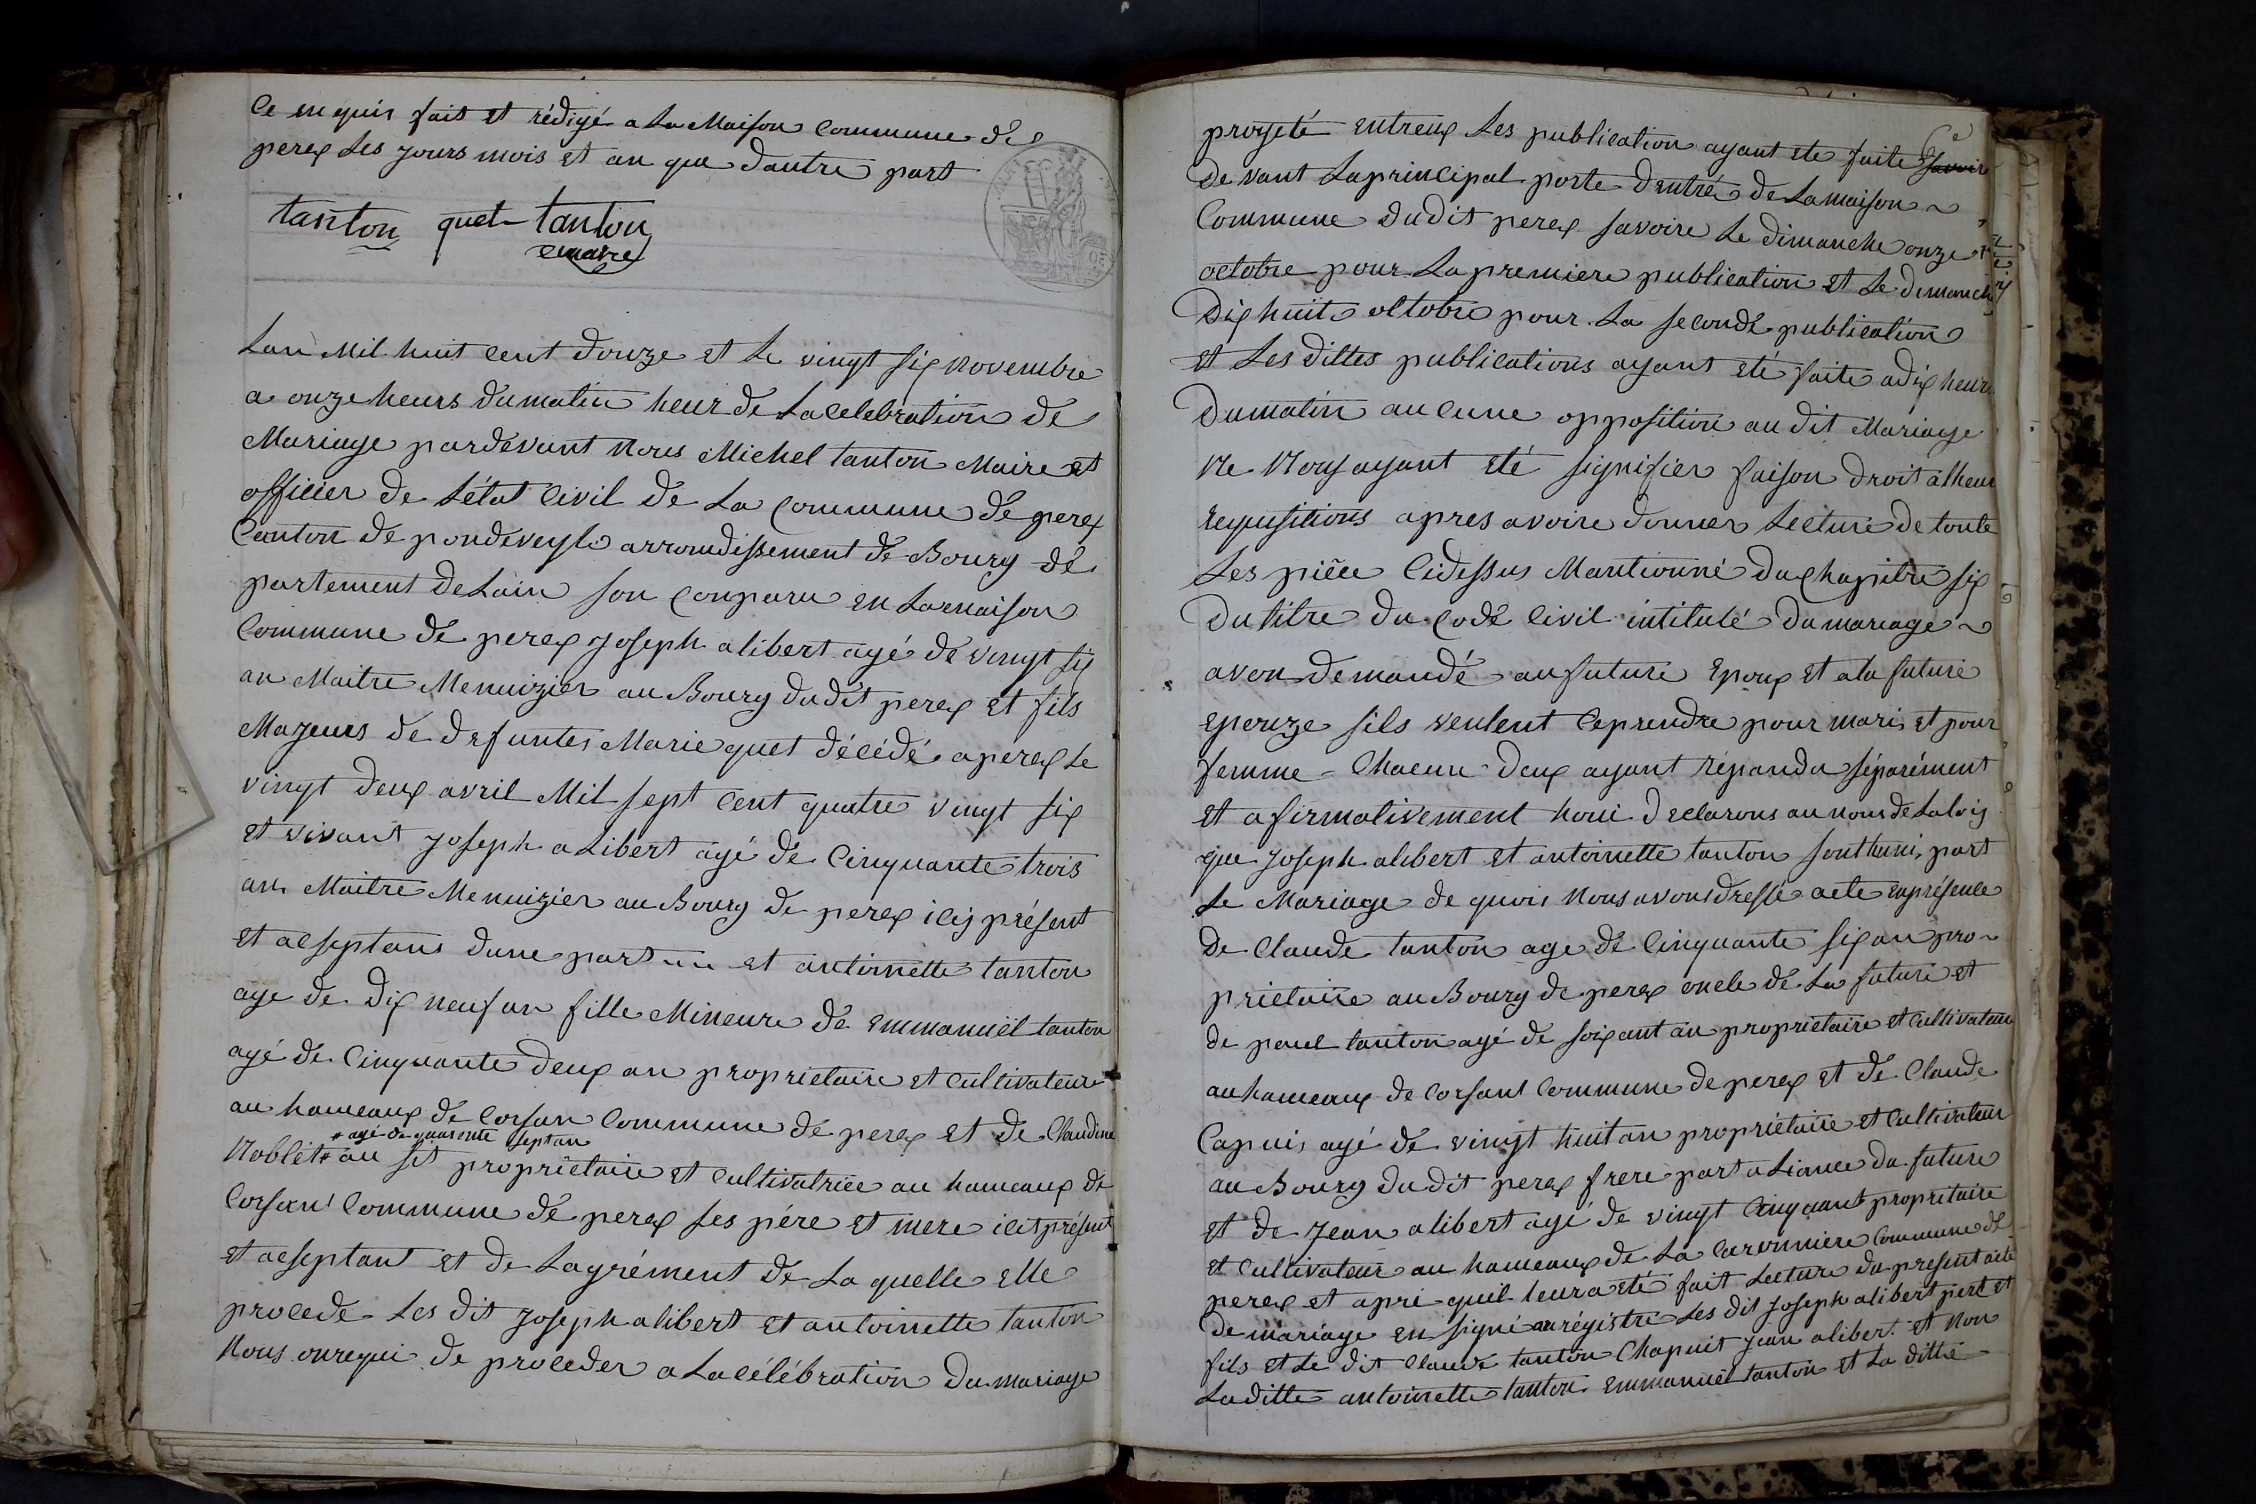 Ce en quis fait et rédigé a La Maison Commune de
perex Les jours mois et an que dautre part
tanton quet tanton
maire
Lan Mil huit Cent douze et Le vingt six novembre
a onze heurs dumatin heur de La Celebration de
Mariage pardevant Nous Michel tanton Maire et
officier de Létat Civil de La Commune de perex
Canton de pondeveyle arrondissement de Bourg dé
partement deLain son Conparu en Lamaison
Commune de perex joseph alibert agé de vingt six
an Maitre Menuizier au Bourg dudit perex et fils
Majeurs de defuntes Marie quet décédé a perex Le
vingt deux avril Mil sept Cent quatre vingt six
et vivant joseph aLibert agé de Cinquante trois
an Maitre Menuizier au Bourg de perex icij présent
et acseptans dune part et antoinette tanton
age de dix neuf an fille Mineure de emmanuël tanton
agé de Cinquante deux an proprietaire et Cultivateur
au hameaux de Corsan Commune de perex et de Claudine
# agé de quarente septan
Noblet# au sit propriétaire et Cultivatrice au hameaux de
Corsan Commune de perex ses pére et mere icit présent
et acseptant et de Lagrément de La quelle elle
procede Les dit joseph alibert et antoinette tanton
Nous onrequi de proceder a La célébration du mariage
projeté entreux Les publication ayant ete faite savoir
de vant Laprincipal porte dentré de Lamaison
Commune dudit perex savoire Le dimanche onze
octobre pour La premiere publication et Le dimanche
dix huit octobre pour La seconde publication
et Les dittes publications ayant eté faite adix heure
Dumatin aucune opposition au dit Mariage
Ne Nous ayant eté signifier faison droit alheur
requisitions apres avoire donner Lecture de toute
Les piéce Cidessus Mantionné du Chapitre six
Du titre du Code Civil intitulé du mariage
avon demandé aufuture Epoux et ala future
epouze sils veulent Ceprendre pour mari et pour
femme Chacun deux ayant répandu séparément
et afirmativement houi declarons au nom de Laloij
que joseph alibert et antoinette tanton sont huni part
Le Mariage de quoi Nous avons dressé acte enprésence
de Claude tanton age de Cinquante six an pro
prietaire au Bourg de perex oncle de La future et
de paul tanton agé de soixant an proprietaire et Cultivateur
au hameaux de Corsant Commune de perex et de Claude
Capuis agé de vingt huit an propriétaire et Cultivateur
au Bourg dudit perex frere part aLiance du future
et de Jean alibert agé de vingt Cinq ant propritaire
et Cultivateur au hameaux de La Caronniere Commune de
perex et apré quil leura été fait Lecture du present acte
de mariage en signé au régistre Les dit joseph alibert pere et
fils et Le dit Claude tanton Chapuit Jean alibert et Non
Laditte antoinette tanton emmanuël tanton et La ditte